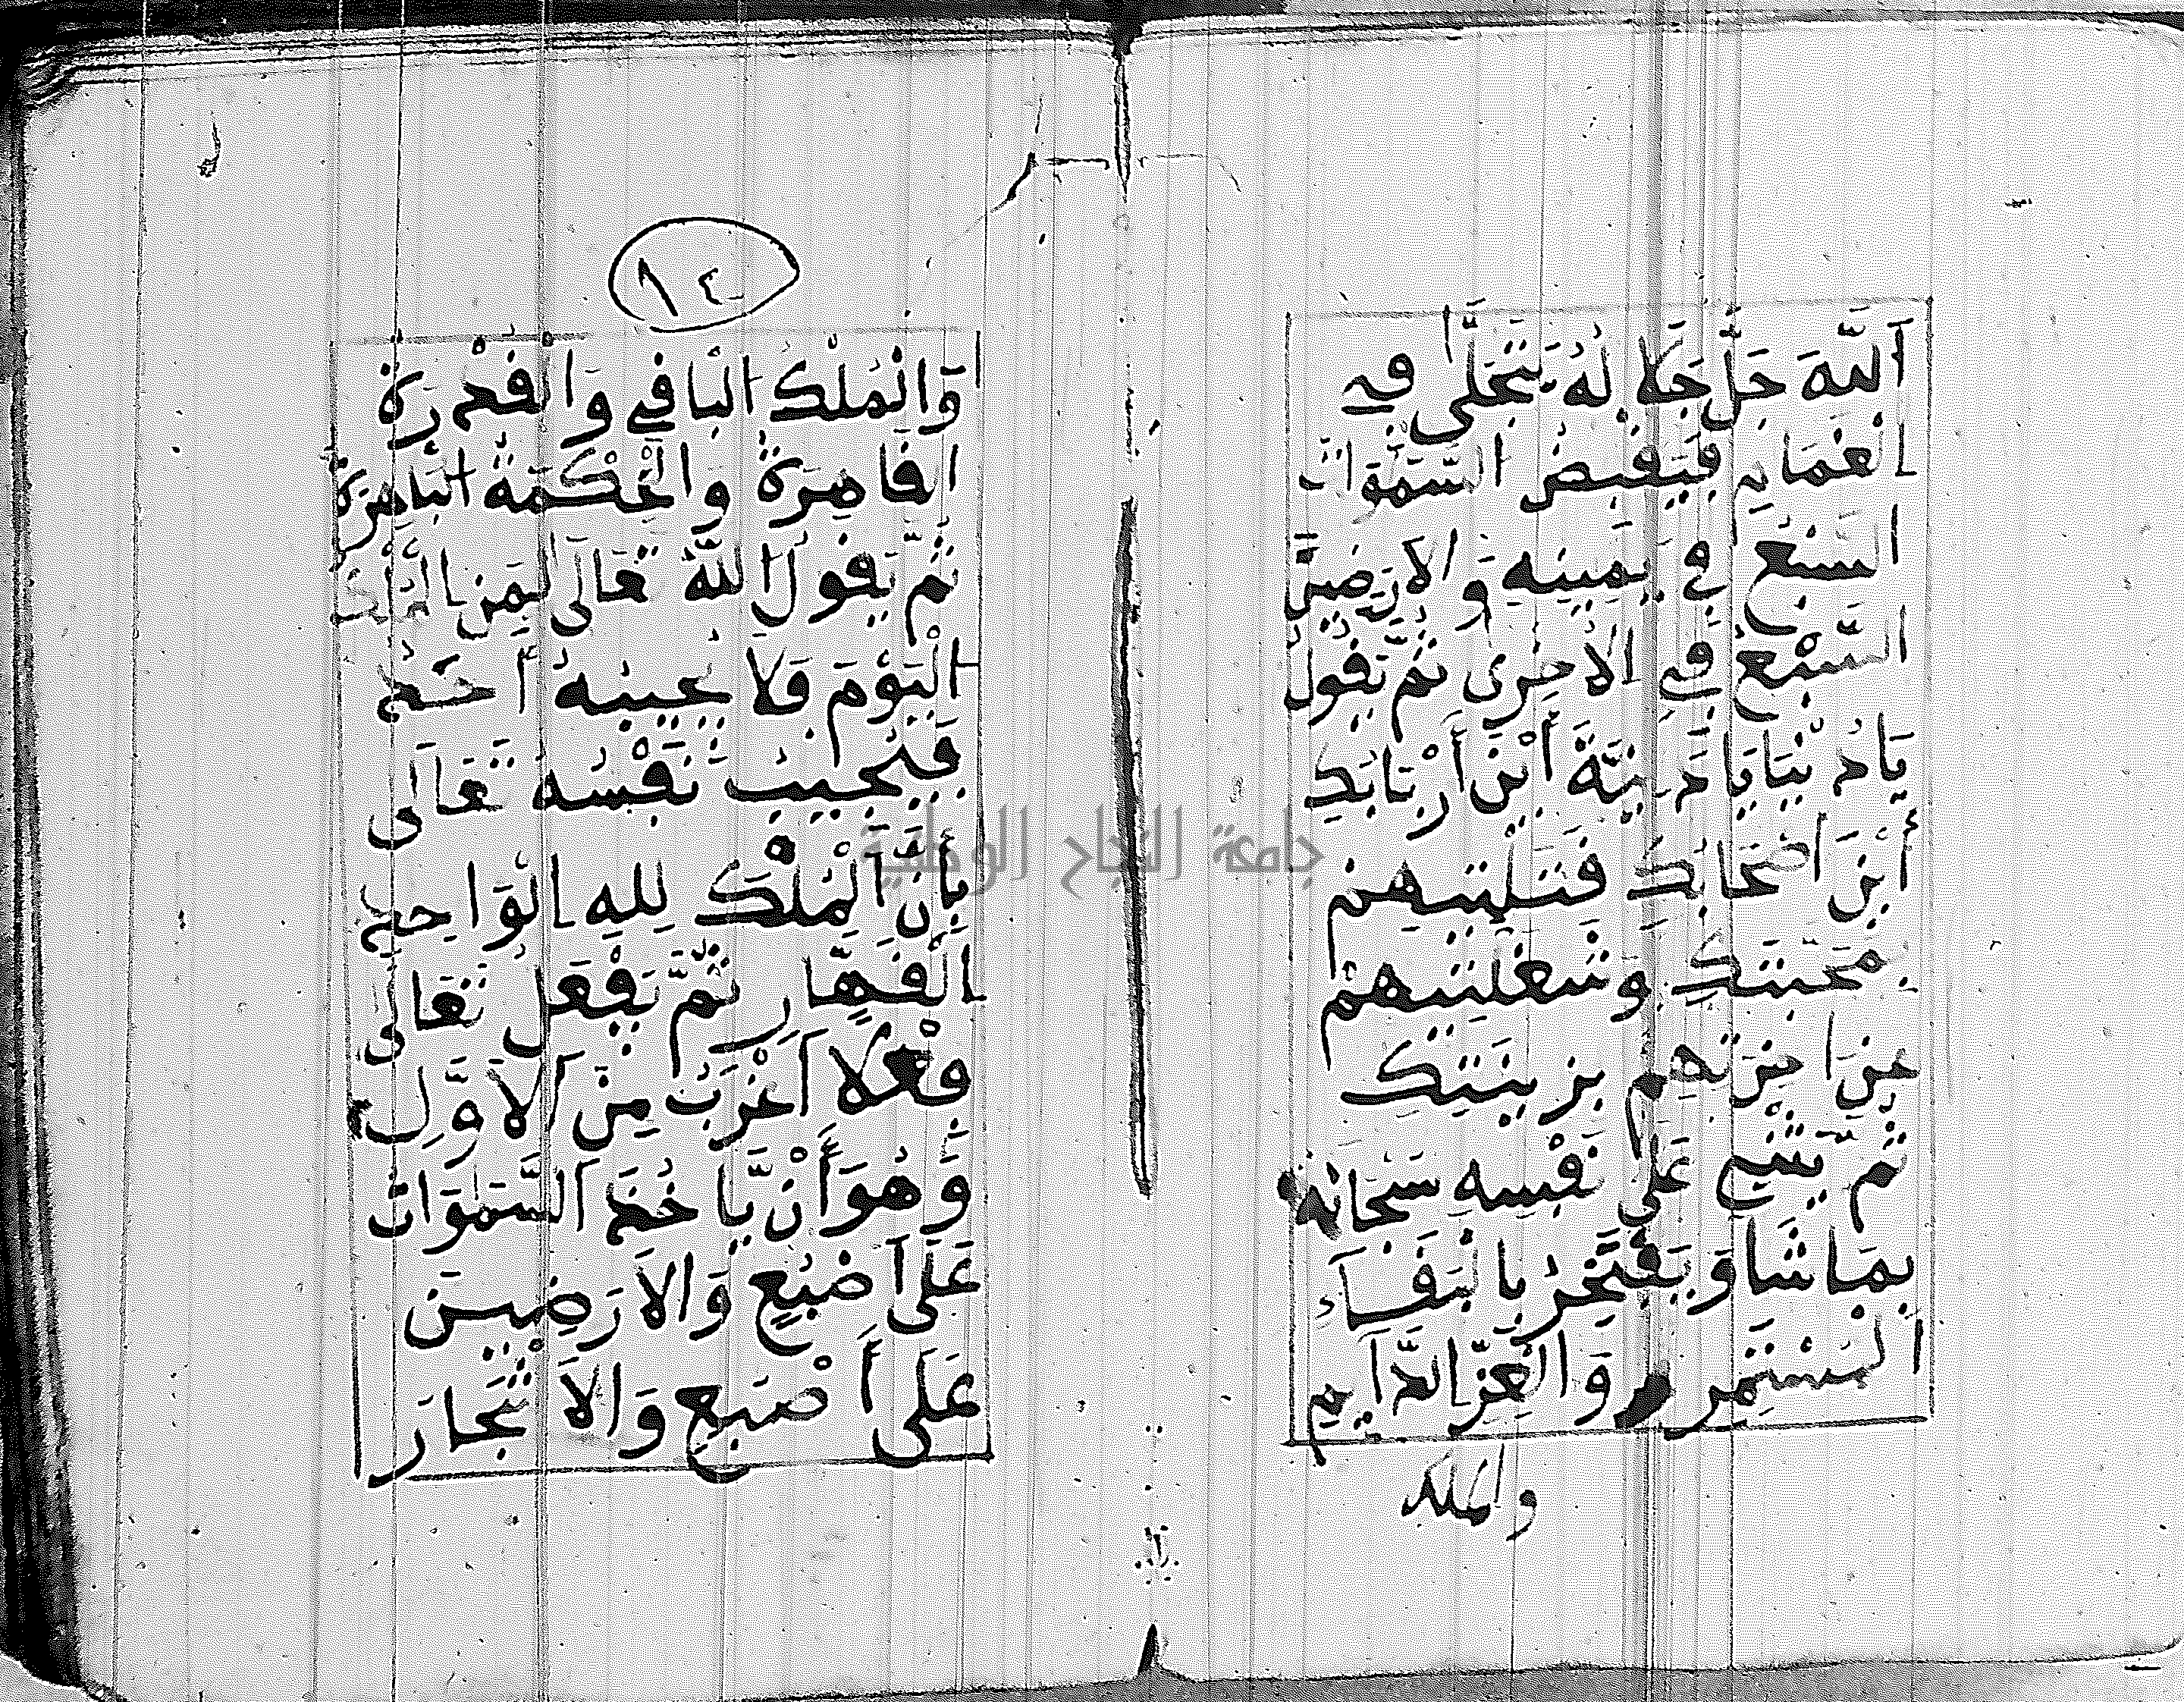 اَللَّهَ جَلَّ جَلَالُهُ يَتَجَلَّى فِي
الْغَمَامِ فَيَقْبِضُ السَّمَوَاتِ
السَّبْعِ فِي يَمِينِهِ وَالْأَرَضِينَ
السَّبْعُ فِي الْأُخْرَى ثُمَّ يَقُولُ
يَا دُنْيَا يَا دَنِيَّةُ أَيْنَ أَرْبَابُكِ
أَيْنَ أَصْحَابُكِ فَتَلْتِيهِمْ
بِمَحَبَّتِكِ وَشَغَلْتِيهِمْ
عَنْ اخِرَتِهِم بِزِينَتِكِ
ثُمَّ يُثْنِي عَلَى نَفْسِهِ سُبْحَانَهُ
بِمَا شَا وَيَفْتَخِرُ بِالْبَقَاءِ
الْمُسْتَمِرِّ وَالْعِزِّ الدَّايِمِ
والملك
١٤
وَالْمُلْكِ الْبَاقِي وَالْقُدْرَةِ
الْقَاهِرَةِ وَالْحِكْمَةِ الْبَاهِرَةِ
ثُمَّ يَقُولُ اللَّهُ تَعَالَى لِمَنِ الْمُلْكُ
الْيَوْمَ فَلَا يُجِيبُهُ أَحَدٌ
فَيُجِيبُ نَفْسَهُ تَعَالَى
بِأَنَّ الْمُلْكَ لِلهِ الْوَاحِدِ
الْقَهَّارِ ثُمَّ يَفْعَلُ تَعَالَى
فِعْلًا أَغْرَبَ مِنَ الْأَوَّلِ
وَهُوَ أَنْ يَّاخُذَ السَّمَوَاتِ
عَلَى اصْبُعٍ وَالْأَرَضِينَ
عَلَى أَصْبُعٍ وَالْأَشْجَارَ
جامعة النجاح الوطنية